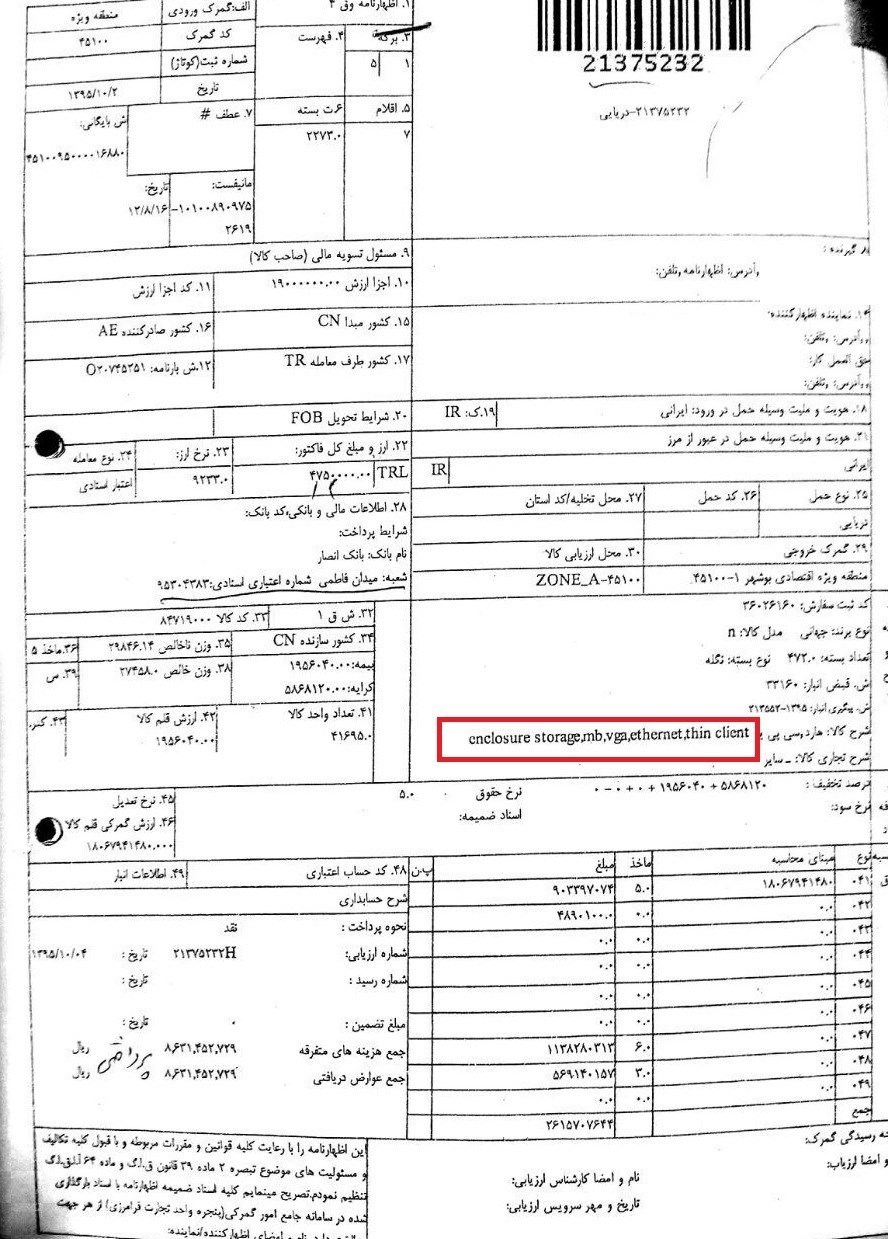 ۱. اظهارنامه وق ۴
الف: گمرک ورودی
منطقه ویژه
کد گمرک
۴۵۱۰۰
شماره ثبت(کوتاژ)
تاریخ
۱۳۹۵/۱۰/۲
۳. برگه
۱ ۵
۴. فهرست
21375232
۲۱۳۷۵۲۳۲-دریایی
۵. اقلام
۷
۶ت بسته
۲۲۷۳.۰
۷. عطف #
ش بایگانی:
۴۵۱۰۰۹۵۰۰۰۰۱۶۸۸۰
مانیفست:
تاریخ:
۱۰۱۰۰۸۹۰۹۷۵-
۱۲/۸/۱۶
۲۶۱۹
۹. مسئول تسویه مالی (صاحب کالا)
گیرنده:
آدرس: اظهارنامه ,تلفن:
۱۰. اجزا ارزش ۱۹۰۰۰۰۰۰.۰۰
۱۱. کد اجزا ارزش
۱۴. نماینده اظهارکننده:
,آدرس: ,تلفن:
حق العمل کار:
,آدرس: ,تلفن:
۱۵. کشور مبدا CN
۱۶. کشور صادرکننده AE
۱۷. کشور طرف معامله TR
۱۲.ش بارنامه: O۲۰۷۴۵۲۵۱
۱۸. هویت و ملیت وسیله حمل در ورود: ایرانی
۱۹.ک: IR
۲۰. شرایط تحویل FOB
۲۱. هویت و ملیت وسیله حمل در عبور از مرز
ایرانی
IR
۲۲. ارز و مبلغ کل فاکتور:
TRL ۴۷۵۰۰۰۰.۰۰
۲۳. نرخ ارز:
۹۲۳۳.۰
۲۴. نوع معامله
اعتبار اسنادی
۲۵. نوع حمل
دریایی
۲۶. کد حمل
۲۷. محل تخلیه/کد استان
۲۸. اطلاعات مالی و بانکی,کد بانک:
شرایط پرداخت:
نام بانک: بانک انصار
شعبه: میدان فاطمی شماره اعتباری اسنادی:۹۵۳۰۴۳۸۳
۲۹. گمرک خروجی
منطقه ویژه اقتصادی بوشهر ۱-۴۵۱۰۰
۳۰. محل ارزیابی کالا
ZONE_A-۴۵۱۰۰
کد ثبت سفارش: ۳۶۰۲۶۱۶۰
نوع برند: جهانی مدل کالا: n
تعداد بسته: ۴۷۲.۰ نوع بسته: نگله
ش. قبض انبار: ۳۳۱۶۰
ش. پیگیری انبار: ۱۳۹۵-۲۱۳۵۵۲
شرح کالا: هارد,سی پی یو
enclosure storage,mb,vga,ethernet,thin client
شرح تجاری کالا: ـ سایر
۳۲. ش ق ۱
۳۳. کد کالا ۸۴۷۱۹۰۰۰
۳۴. کشور سازنده CN
۳۵. وزن ناخالص ۲۹۸۴۶.۱۴
۳۶.ماخذ ۵
بیمه:۱۹۵۶۰۴۰.۰۰
۳۸. وزن خالص ۲۷۴۵۸.۰
۳۹. س
کرایه:۵۸۶۸۱۲۰.۰۰
۴۱. تعداد واحد کالا
۴۱۶۹۵.۰
۴۲. ارزش قلم کالا
۱۹۵۶۰۴۰.۰۰
درصد تخفیف: ۵۸۶۸۱۲۰ + ۱۹۵۶۰۴۰ + ۰ + ۰ - ۰
نرخ سود:
نرخ حقوق ۵.۰
اسناد ضمیمه:
۴۵. نرخ تعدیل
۴۶. ارزش گمرکی قلم کالا
۱۸۰۶۷۹۴۱۴۸۰.۰۰۰
نوع مبنای محاسبه ماخذ مبلغ پ.ن
۰۴۱ ۱۸۰۶۷۹۴۱۴۸۰ ۵.۰ ۹۰۳۳۹۷۰۷۴
۰۴۲ ۰.۰ ۰.۰ ۴۸۹۰۱۰۰.۰
۰۴۳ ۰.۰ ۰.۰ ۰.۰
۰۴۴ ۰.۰ ۰.۰ ۰.۰
۰۴۵ ۰.۰ ۰.۰ ۰.۰
۰۴۶ ۰.۰ ۰.۰ ۰.۰
۰۴۷ ۰.۰ ۶.۰ ۱۱۳۸۲۸۰۳۱۳
۰۴۸ ۰.۰ ۳.۰ ۵۶۹۱۴۰۱۵۷
۰۴۹ ۰.۰ ۰.۰ ۰.۰
جمع ۲۶۱۵۷۰۷۶۴۴
۴۸. کد حساب اعتباری
۴۹. اطلاعات انبار
شرح حسابداری
نحوه پرداخت: نقد
شماره ارزیابی: ۲۱۳۷۵۲۳۲H تاریخ: ۱۳۹۵/۱۰/۰۴
شماره رسید: تاریخ:
مبلغ تضمین: ۰ تاریخ:
جمع هزینه های متفرقه ۸,۶۳۱,۴۵۲,۷۲۹ ریال
جمع عوارض دریافتی ۸,۶۳۱,۴۵۲,۷۲۹ ریال
رسیدگی گمرک:
و امضا ارزیاب:
نام و امضا کارشناس ارزیابی:
تاریخ و مهر سرویس ارزیابی:
این اظهارنامه را با رعایت کلیه قوانین و مقررات مربوطه و با قبول کلیه تکالیف
و مسئولیت های موضوع تبصره ۲ ماده ۳۹ قانون ق.ا.گ و ماده ۶۴ آ.ا.ق.ا.گ
تنظیم نمودم.تصریح مینمایم کلیه اسناد ضمیمه اظهارنامه با اسناد بارگذاری
شده در سامانه جامع امور گمرکی(پنجره واحد تجارت فرامرزی) از هر جهت